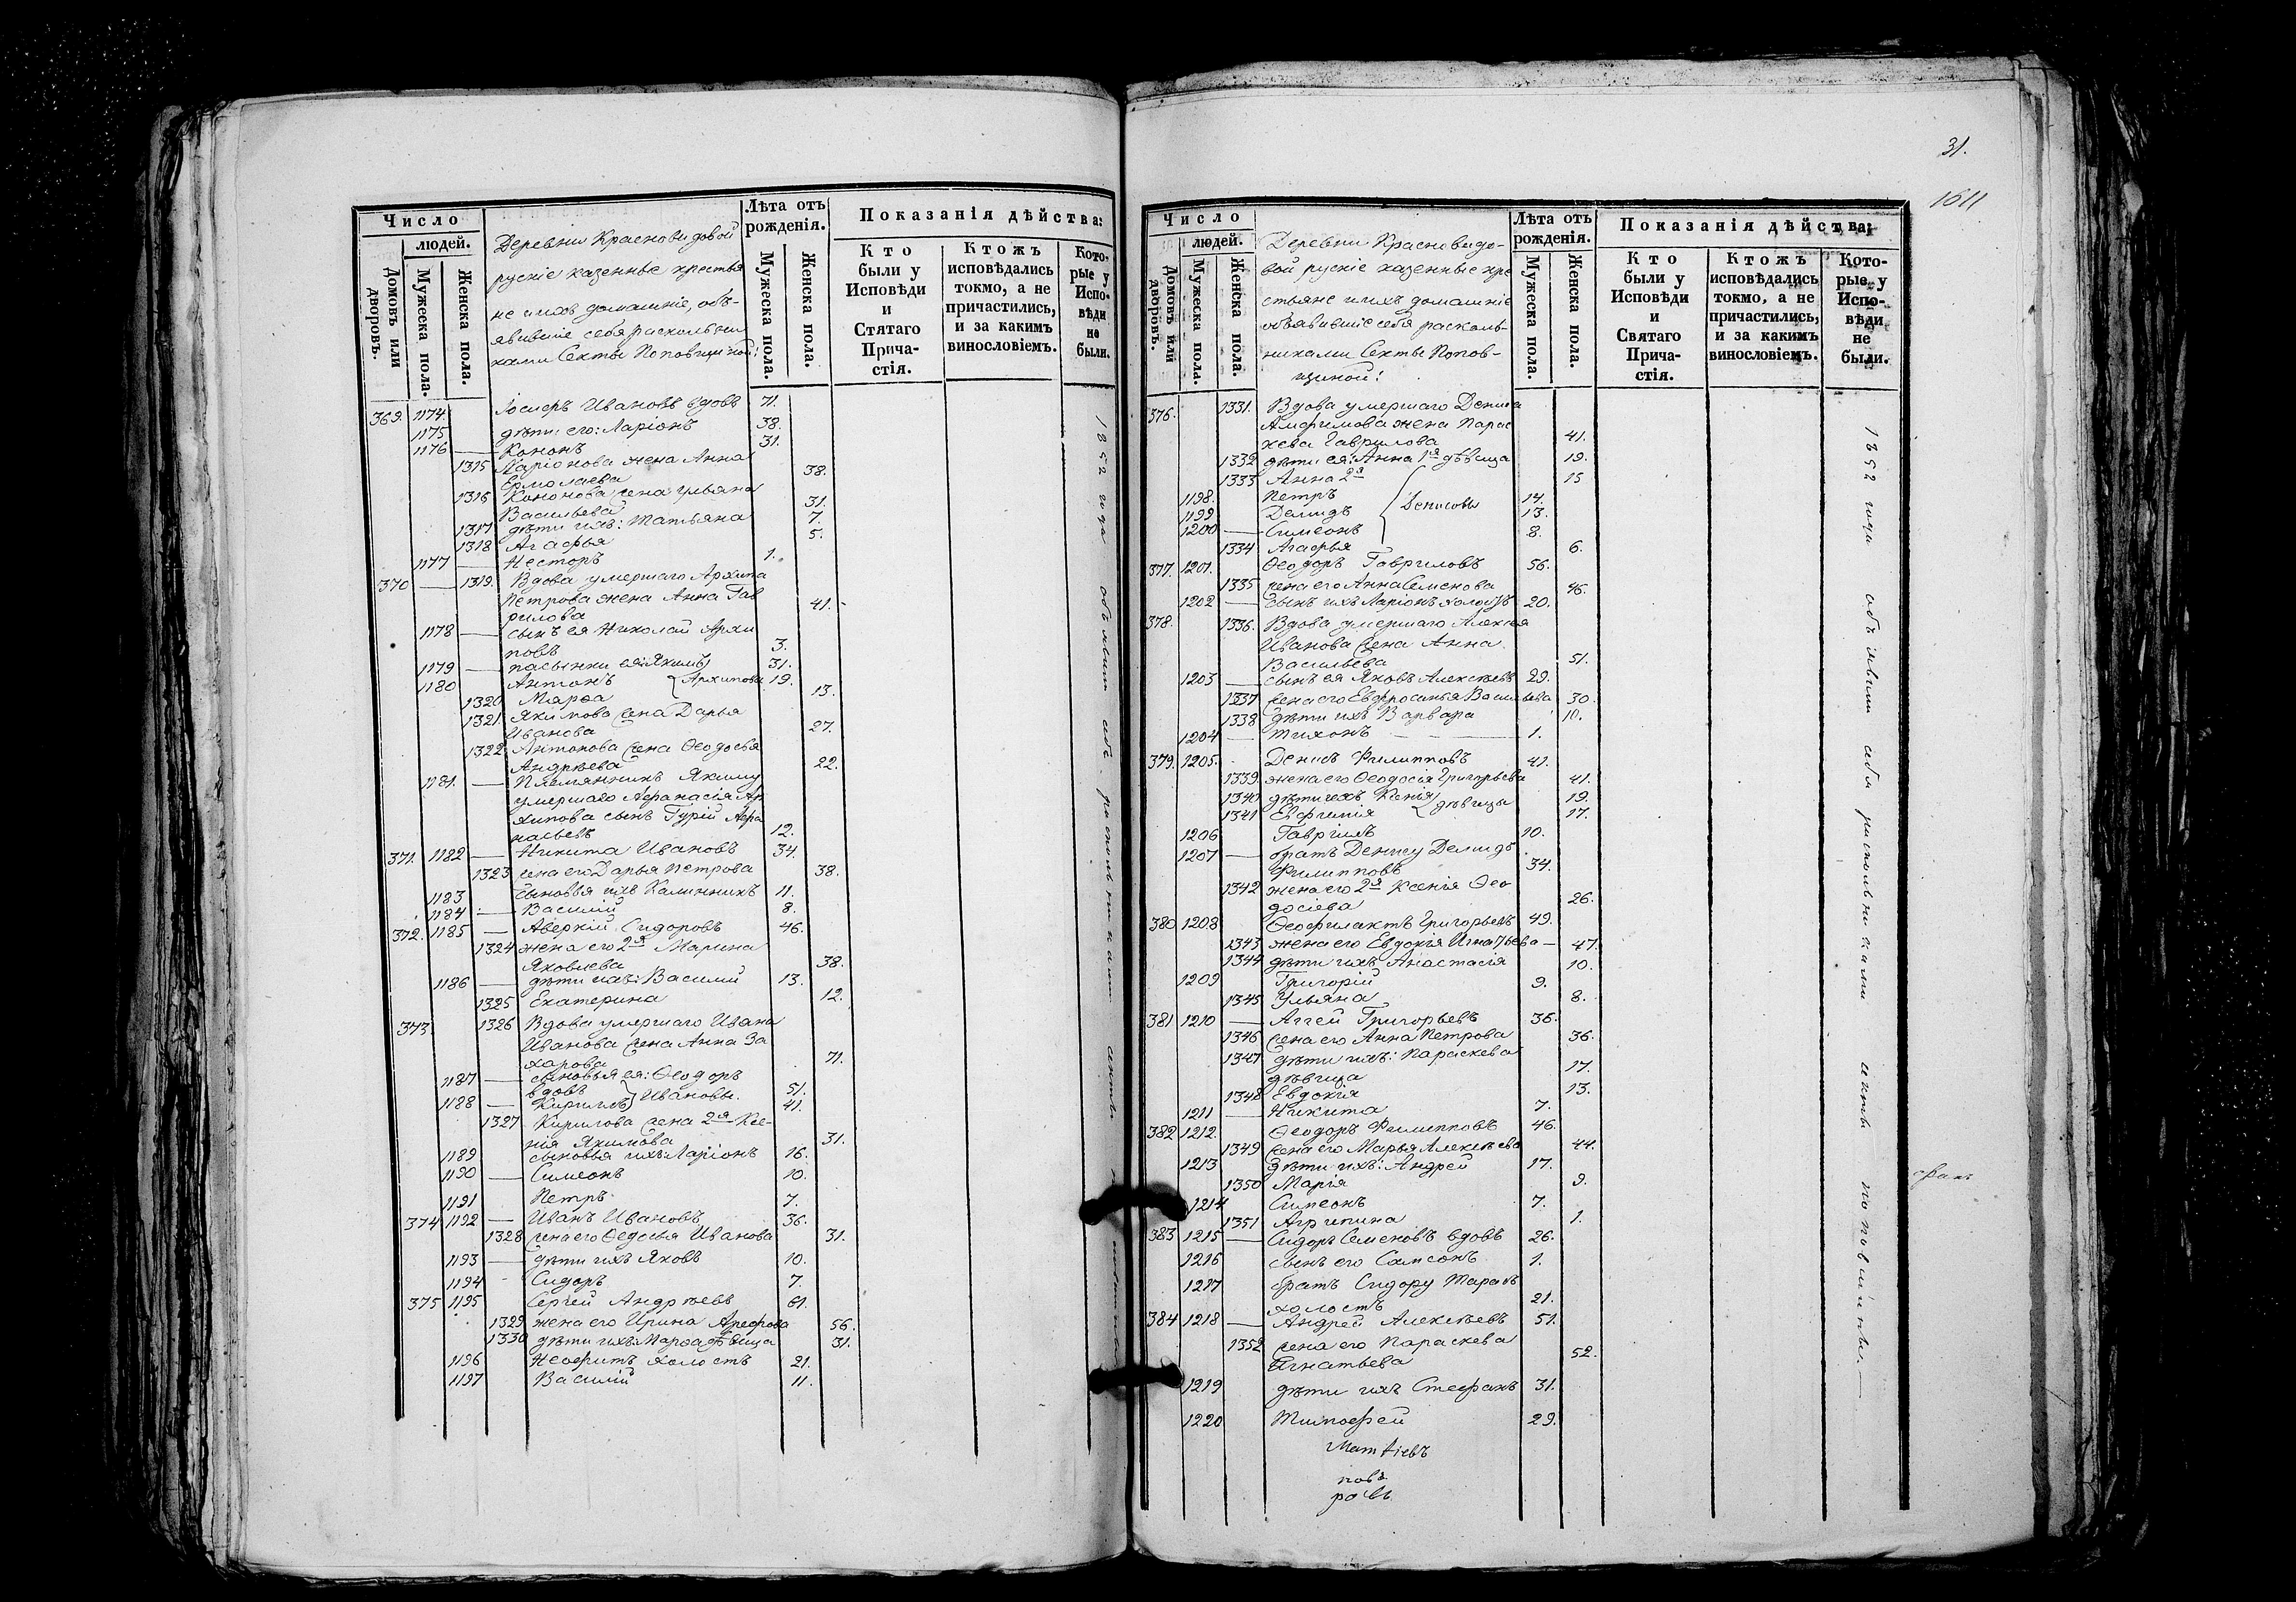 Число
людей.
Домовъ или дворовъ.
Мужеска пола.
Женска пола.
Деревни Красновидовой
руские казенные крестья
не и ихъ домашніе, объ-
явившіе себя раскольни
ками Секты Поповщиной:
Лѣта отъ рожденія.
Мужеска пола.
Женска пола.
Показанія дѣйства:
Кто были у Исповѣди и Стятаго Прича-стія.
Ктожъ исповѣдались токмо, а не причастились, и за какимъ винословіемъ.
Кото-рые у Испо-вѣди не были.
369. 1174. Іосифъ Ивановъ вдовъ 71.
1175 дѣти его: Ларіонъ 38.
1176 Кононъ 31.
1315 Ларіонова жена Анна
Ермолаева 38.
1316 Кононова жена Ульяна
Васильева 31.
1317 дѣти ихъ: Татьяна 7.
1318 Агафья 5.
1177 Несторъ 1.
370 1319. Вдова умершаго Архипа
Петрова жена Анна Гав
рилова 41.
1178 сынъ ея Николай Архи
повъ 3.
1179 пасынки ея: Якимъ 31.
1180 Антонъ Архиповы 19.
1320 Марѳа 13.
1321 Якимова жена Дарья
Иванова 27.
1322 Антонова жена Ѳеодосья
Андрѣева 22.
1181. Племянникъ Якиму
умершаго Афанасія Ар
хипова сынъ Гурій Афа
насьевъ 12.
371. 1182 Никита Ивановъ 34.
1323 жена его Дарья Петрова 38.
1183 сыновья ихъ Калинникъ 11.
1184 Василій 8.
372. 1185 Аверкій Сидоровъ 46.
1324 жена его 2я Марина
Яковлева 38.
1186 дѣти ихъ: Василій 13.
1325 Екатерина 12.
373. 1326 Вдова умершаго Ивана
Иванова жена Анна За
харова 71.
1187 сыновья ея: Ѳеодоръ
вдовъ 51.
1188 Кирилъ Ивановы. 41.
1327 Кирилова жена 2я Ксе-
нія Якимова 31.
1189 сыновья ихъ Ларіонъ 16.
1190 Симеонъ 10.
1191 Петръ 7.
374 1192 Иванъ Ивановъ 36.
1328 жена его Ѳедосья Иванова 31.
1193 дѣти ихъ Яковъ 10.
1194 Сидоръ 7.
375 1195 Сергей Андрѣевъ 61.
1329 жена его Ирина Арефова 56.
1330 дѣти ихъ: Марѳа дѣвица 31.
1196 Неофитъ холостъ 21.
1197 Василій 11.
1852 года объявили себя раскольниками секты
31.
1611
Число
людей.
Домовъ или дворовъ.
Мужеска пола.
Женска пола.
Деревни Красновидо-
вой руские казенные кре
стьяне и ихъ домашніе
объявившіе себя расколь-
никами Секты Попов-
щиной:
Лѣта отъ рожденія.
Мужеска пола.
Женска пола.
Показанія дѣйства;
Кто были у Исповѣди и Святаго Прича-стія.
Ктожъ исповѣдались токмо, а не причастились, и за какимъ винословіемъ.
Кото-рые у Испо-вѣди не были.
376. 1331. Вдова умершаго Дениса
Амфимова жена Парас
кева Гаврилова 41.
1332 дѣти ея: Анна 1я дѣвица 19.
1333 Анна 2я 15
1198. Петръ 14.
1199 Демидъ Денисовы 13.
1200 Симеонъ 8.
1334 Агафья 6.
377. 1201. Ѳеодоръ Гавриловъ 56.
1335 жена его Анна Семенова 46.
1202 сынъ ихъ Ларіонъ холостъ 20.
378. 1336. Вдова умершаго Алексея
Иванова жена Анна
Васильева 51.
1203 сынъ ея Яковъ Алексѣевъ 29.
1337 жена его Евфросинья Васильева 30.
1338 дѣти ихъ Варвара 10.
1204 Тихонъ 1.
379. 1205. Денисъ Филипповъ 41.
1339. жена его Ѳеодосія Григорьева 41.
1340 дѣти ихъ Ксенія дѣвицы 19.
1341 Евфимія 17.
1206 Гавріилъ 10.
1207 братъ Денису Демидъ
Филипповъ 34.
1342 жена его 2я Ксенія Ѳео
досіева 26.
380 1208 Ѳеофилактъ Григорьевъ 49.
1343 жена его Евдокія Игнатьева 47.
1344 дѣти ихъ Анастасія 10.
1209 Григорій 9.
1345 Ульяна 8.
381 1210 Аггей Григорьевъ 36.
1346 жена его Анна Петрова 36.
1347 дѣти ихъ: Параскева
дѣвица 17.
1348 Евдокія 13.
1211 Никита 7.
382 1212. Ѳеодоръ Филипповъ 46.
1349 жена его Марья Алексѣева 44.
1213 дѣти ихъ: Андрей 17.
1350 Марія 9.
1214 Симеонъ 7.
1351 Агрипина 1.
383 1215 Сидоръ Семеновъ вдовъ 26.
1216 сынъ его Самсонъ 1.
1217 братъ Сидору Тарасъ
холостъ 21.
384 1218 Андрей Алексѣевъ 51.
1352 жена его Параскева
Игнатьева 52.
1219 дѣти ихъ Стефанъ 31.
1220 Тимофей 29.
1852 года объявили себя раскольниками секты поповщины.